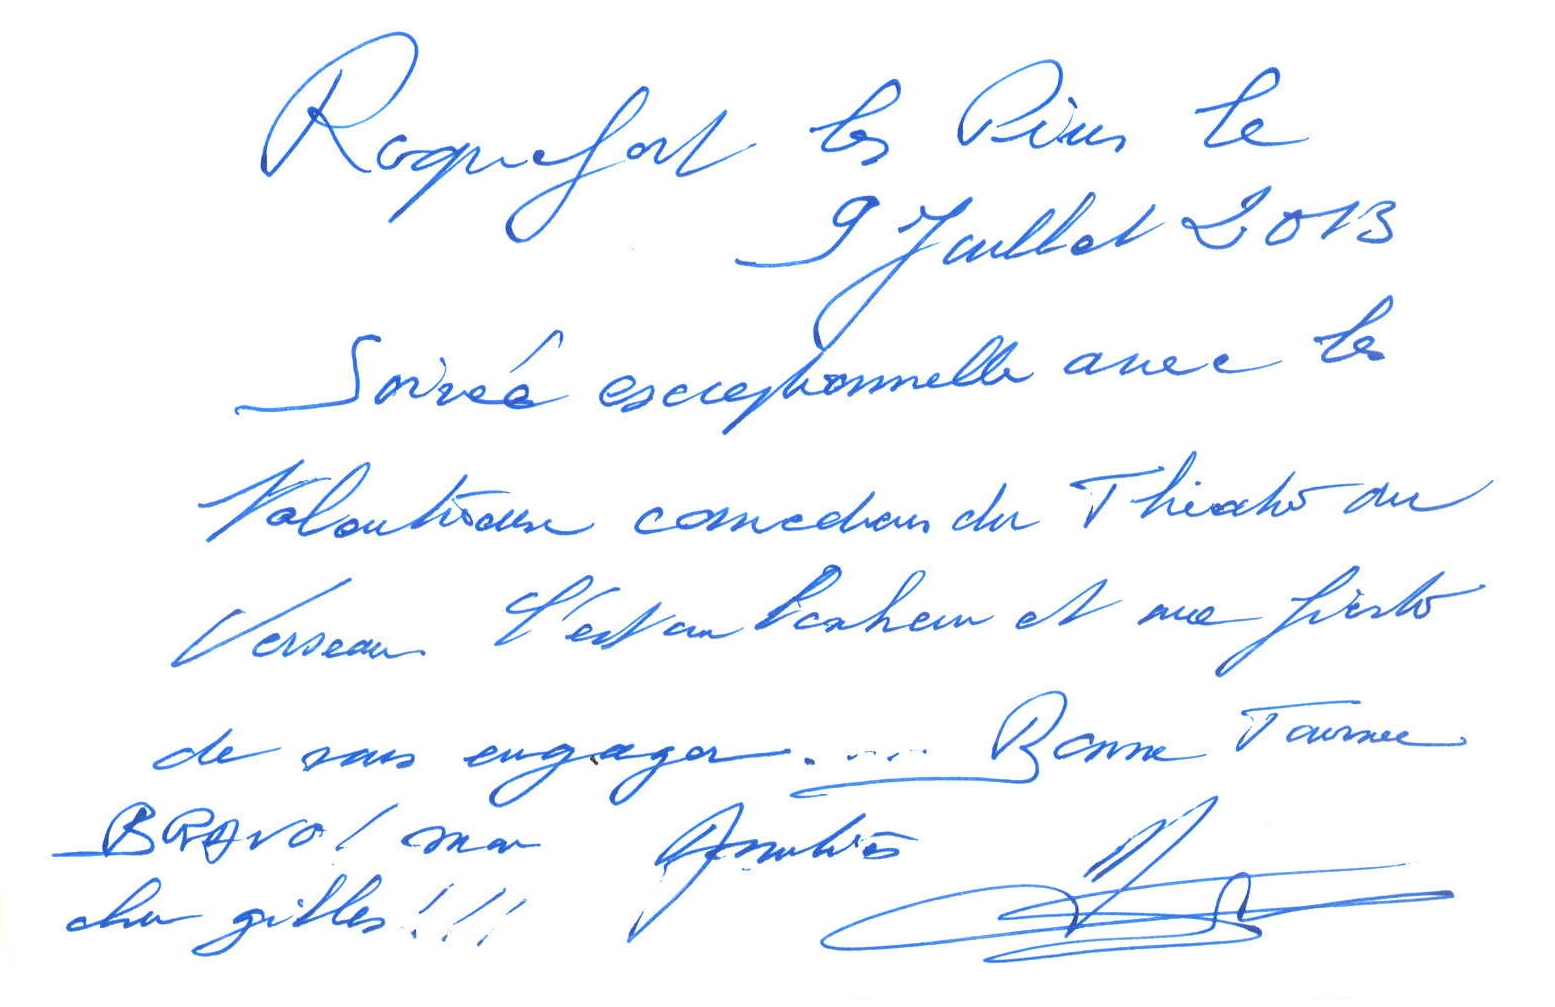 Roquefort les Pins le
9 Juillet 2013
Soirée exceptionnelle avec les
comediens du Theatre du
Verseau C'est un bonheur et une fierté
de vous engager..... Bonne Tournee
BRAVO! mon Amitiés
cher gilles!!!